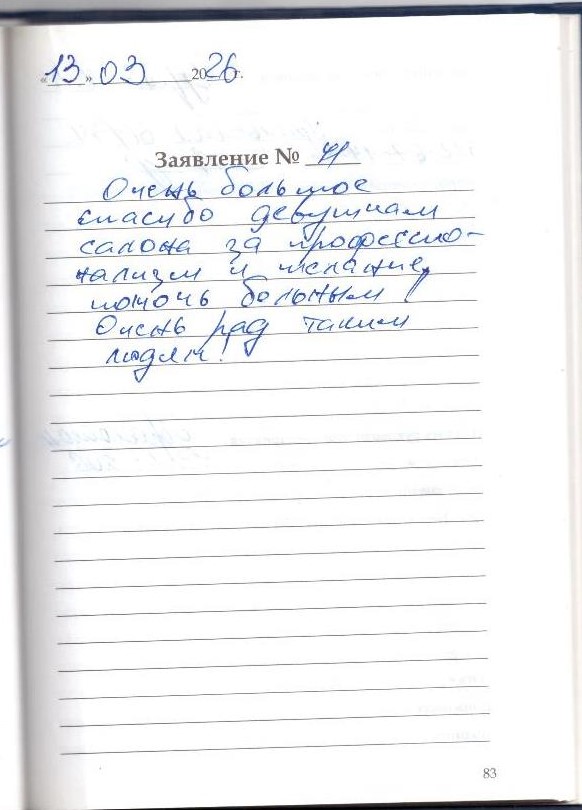 «13» 03 2026г.
Заявление № 41
Очень большое
спасибо девушкам
салона за профессио-
нализм и желание
помочь больным!
Очень рад таким
людям!
83